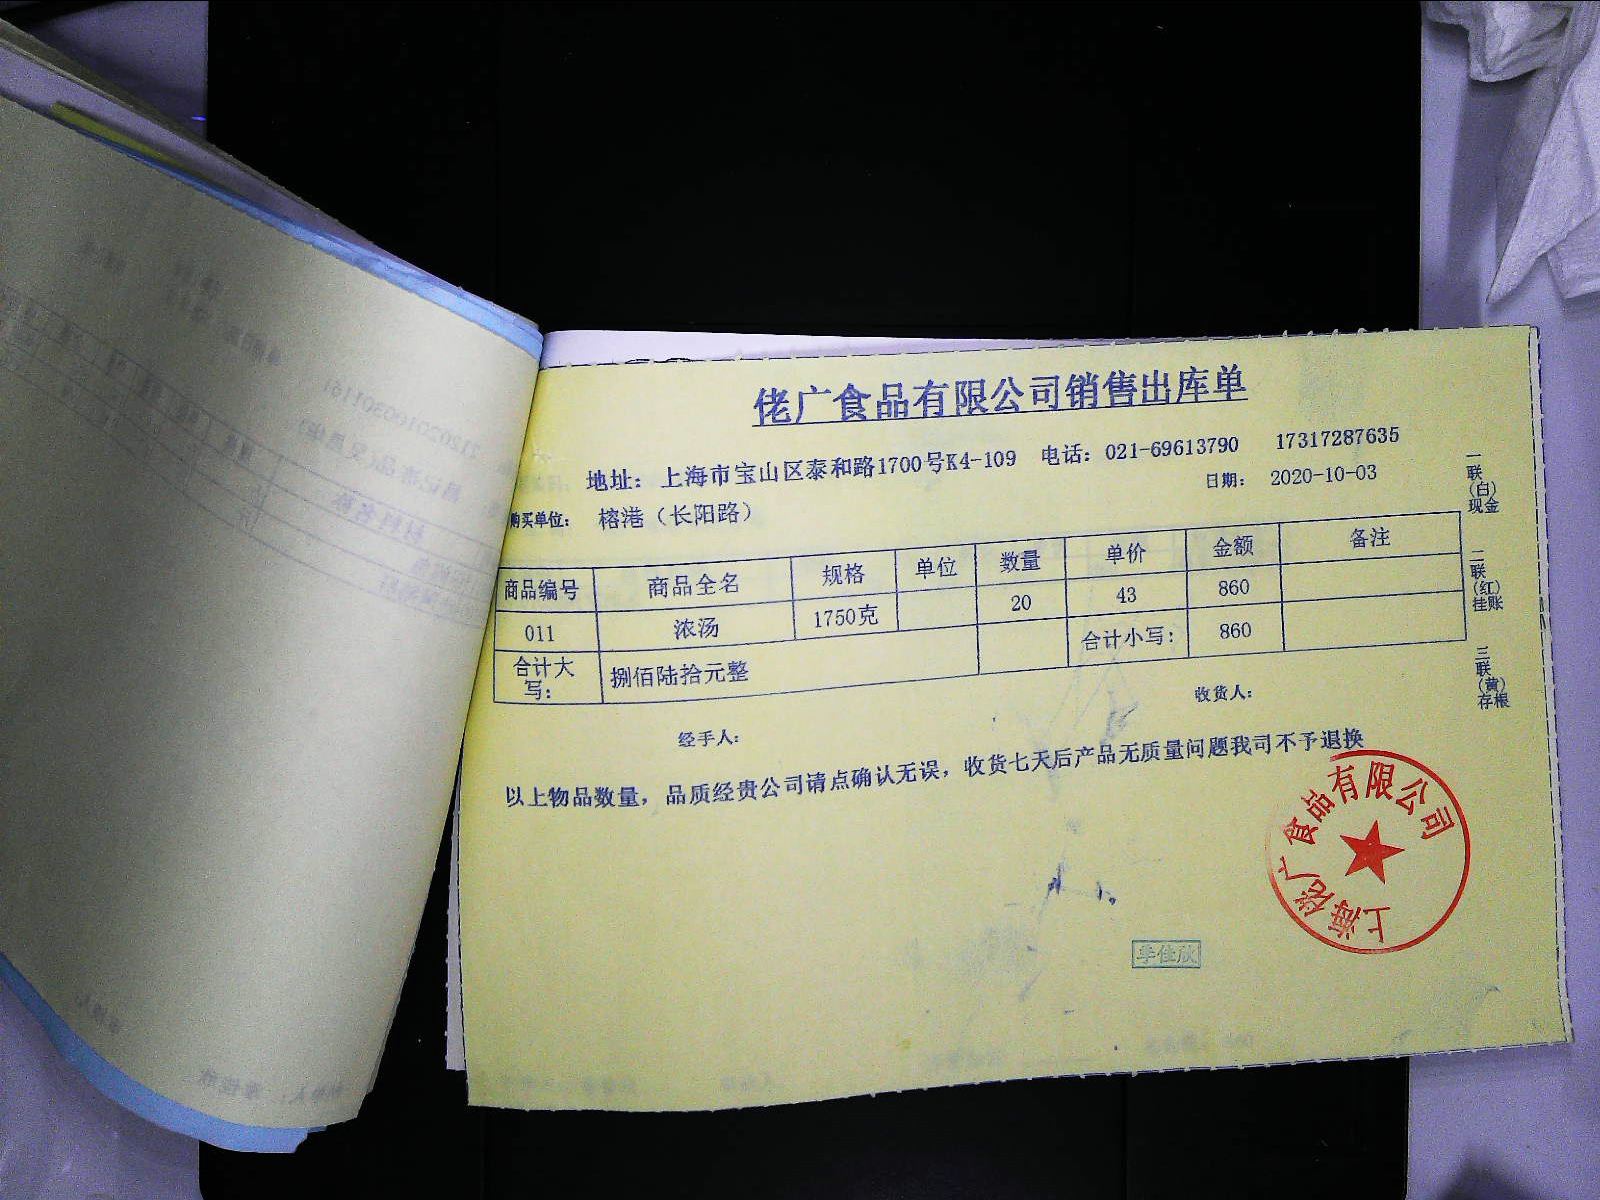 佬广食品有限公司销售出库单
地址：上海市宝山区泰和路1700号K4-109 电话：021-69613790 17317287635
日期： 2020-10-03
购买单位： 榕港（长阳路）
商品编号 商品全名 规格 单位 数量 单价 金额 备注
011 浓汤 1750克 20 43 860
合计大写： 捌佰陆拾元整 合计小写： 860
经手人： 收货人：
以上物品数量，品质经贵公司请点确认无误，收货七天后产品无质量问题我司不予退换
一联（白）现金
二联（红）挂账
三联（黄）存根
上海佬广食品有限公司
李佳欣